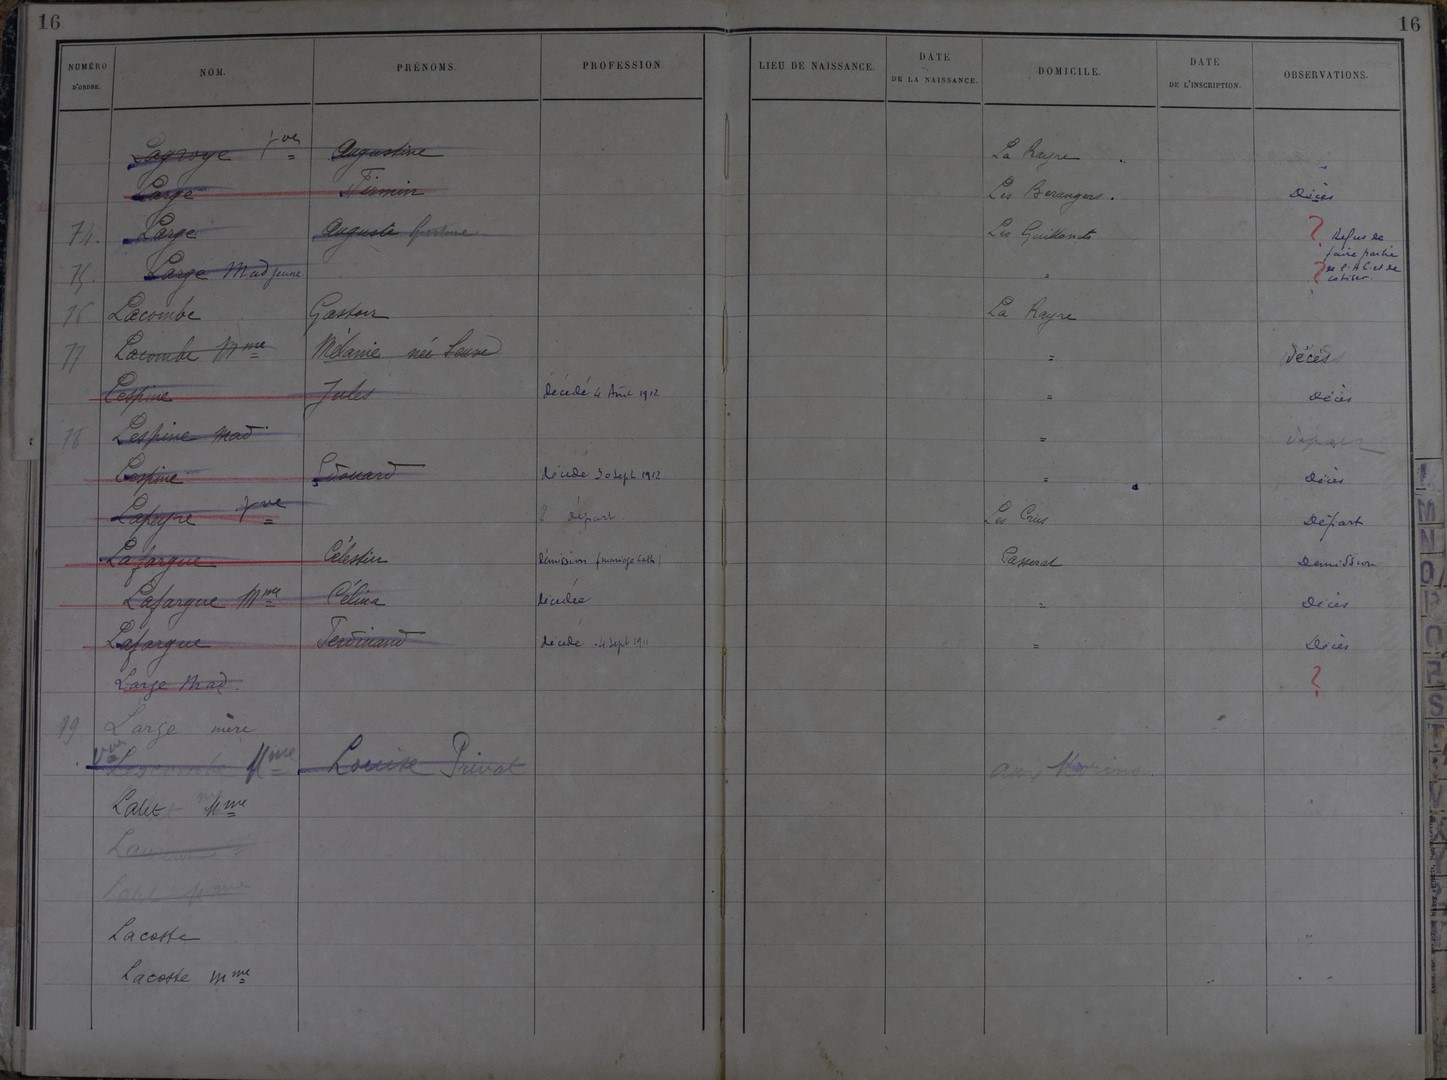 16
16
NUMÉRO D'ORDRE. NOM. PRÉNOMS. PROFESSION LIEU DE NAISSANCE. DATE DE LA NAISSANCE. DOMICILE. DATE DE L'INSCRIPTION. OBSERVATIONS.
Lagroye Vve Augustine La Rayre
Large Firmin Les Berangers. Décès
74. Large Auguste Les Guillomets ? Refus de
faire partie
75. Large Mad jeune " ? de l'A C et de
cotiser.
76 Lacombe Gaston La Rayre
77 Lacombe Mme Mélanie née " Décès
Lespine Jules décédé 4 Août 1912 " Décès
78 Lespine Mad " Départ
Lespine Edouard décédé 30 Sept 1912 " Décès
Lapeyre Vve ? départ Les Départ
Lafargue Célestin démission (mariage Cath) Casserat Demission
Lafargue Mme Célina décédée " Décès
Lafargue Ferdinand décédé 4 Sept 1911 " Décès
Large Mad. ?
19. Large mère
Vve Lescombe Mme Louise Privat aux Morins
Lalet Mme
Lacoste
Lacoste Mme
L
M
N
O
P
Q
R
S
T